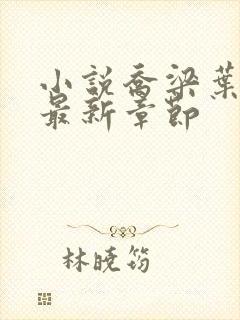 小說喬梁葉
最新章節
林曉筠